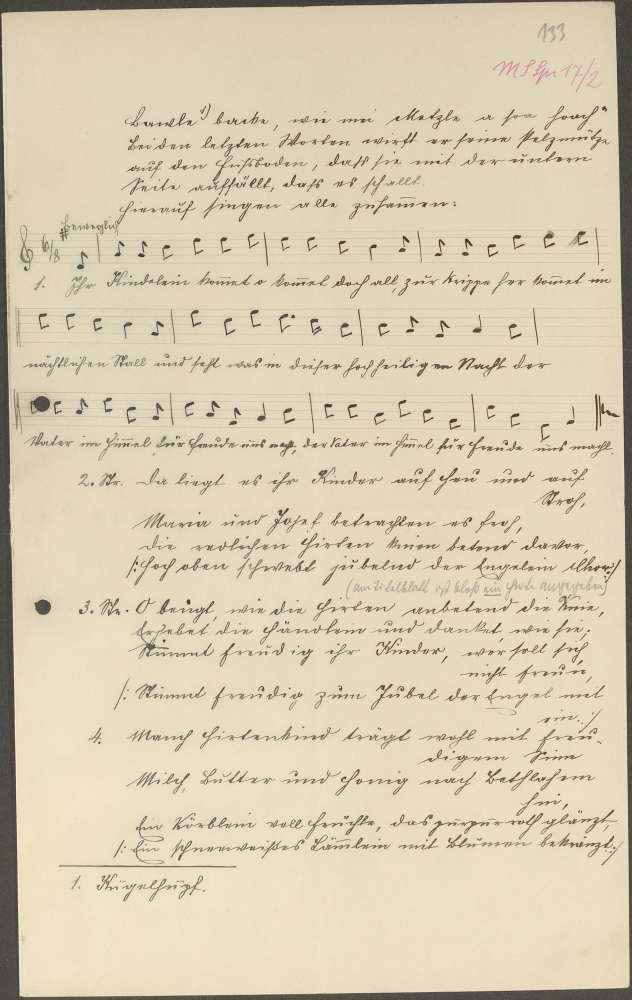 133
MS Spr 17/2
Bawle¹⁾ backe, wie mei Metzle a so hoach"
Bei den letzten Worten wirft er seine Pelzmütze
auf den Fußboden, daß sie mit der untern
Seite auffällt, daß es schallt.
Hierauf singen alle zusam̅en:
Beweglich
6/8
1. Ihr Kindelein kom̅et o kom̅et doch all, zur Krippe her kom̅et im
nächtlichen Stall und seht was in dieser hochheiligen Nacht der
Vater im Him̅el für Freude uns macht, der Vater im Him̅el für Freude uns macht.
2. Str. Da liegt es ihr Kinder auf Heu und auf
Stroh,
Maria und Josef betrachten es froh,
die redlichen Hirten knien betend davor,
/: hoch oben schwebt jubelnd der Engelein Chor :/
(am Titelblatt ist bloß ein Hirte angegeben)
3. Str. O beugt, wie die Hirten anbetend die Knie,
Erhebet die Händlein und danket, wie sie;
Stimmt freudig ihr Kinder, wer sollt sich
nicht freun,
/: Stimmt freudig zum Jubel der Engel mit
ein. :/
4. Manch Hirtenkind trägt wohl mit freu-
digem Sinn
Milch, Butter und Honig nach Bethlehem
hin,
Ein Körblein voll Früchte, das purpurroth glänzt
/: Ein schneeweißes Lämlein mit Blumen bekränzt :/
1. Kugelhupf.